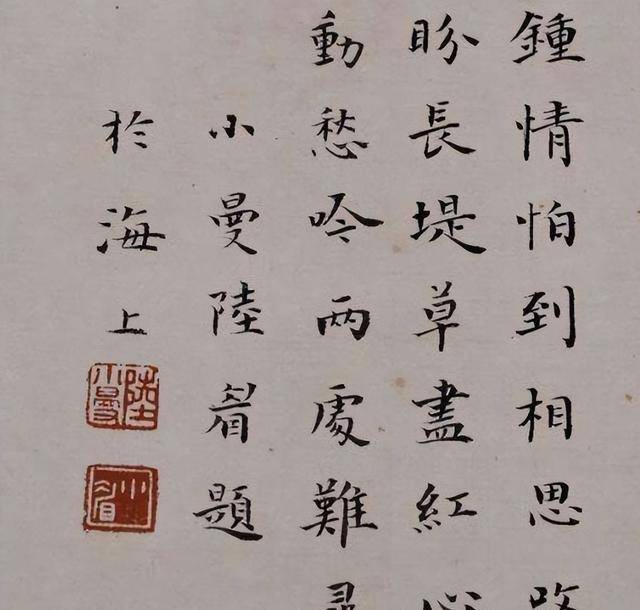 鍾情怕到相思路
盼長堤草盡紅心
動愁吟两處難尋
小曼陸眉題
於海上
陸小曼
小眉